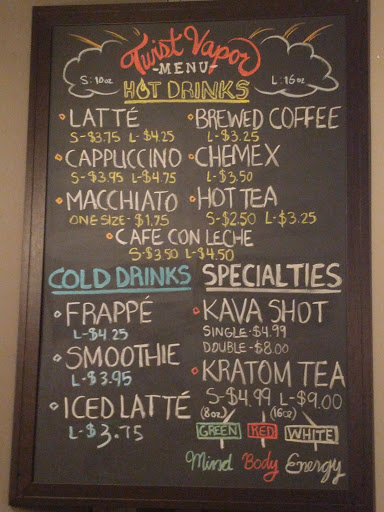 Twist Vapor
-MENU-
S: 10oz
L: 16oz
HOT DRINKS
• LATTÉ
S-$3.75 L-$4.25
• CAPPUCCINO
S-$3.95 L-$4.75
• MACCHIATO
ONE SIZE-$1.75
• BREWED COFFEE
L-$3.25
• CHEMEX
L-$3.50
• HOT TEA
S-$2.50 L-$3.25
• CAFE CON LECHE
S-$3.50 L-$4.50
COLD DRINKS
• FRAPPÉ
L-$4.25
• SMOOTHIE
L-$3.95
• ICED LATTÉ
L-$3.75
SPECIALTIES
• KAVA SHOT
SINGLE-$4.99
DOUBLE-$8.00
• KRATOM TEA
S-$4.99 L-$9.00
(8oz) (16oz)
GREEN RED WHITE
Mind Body Energy